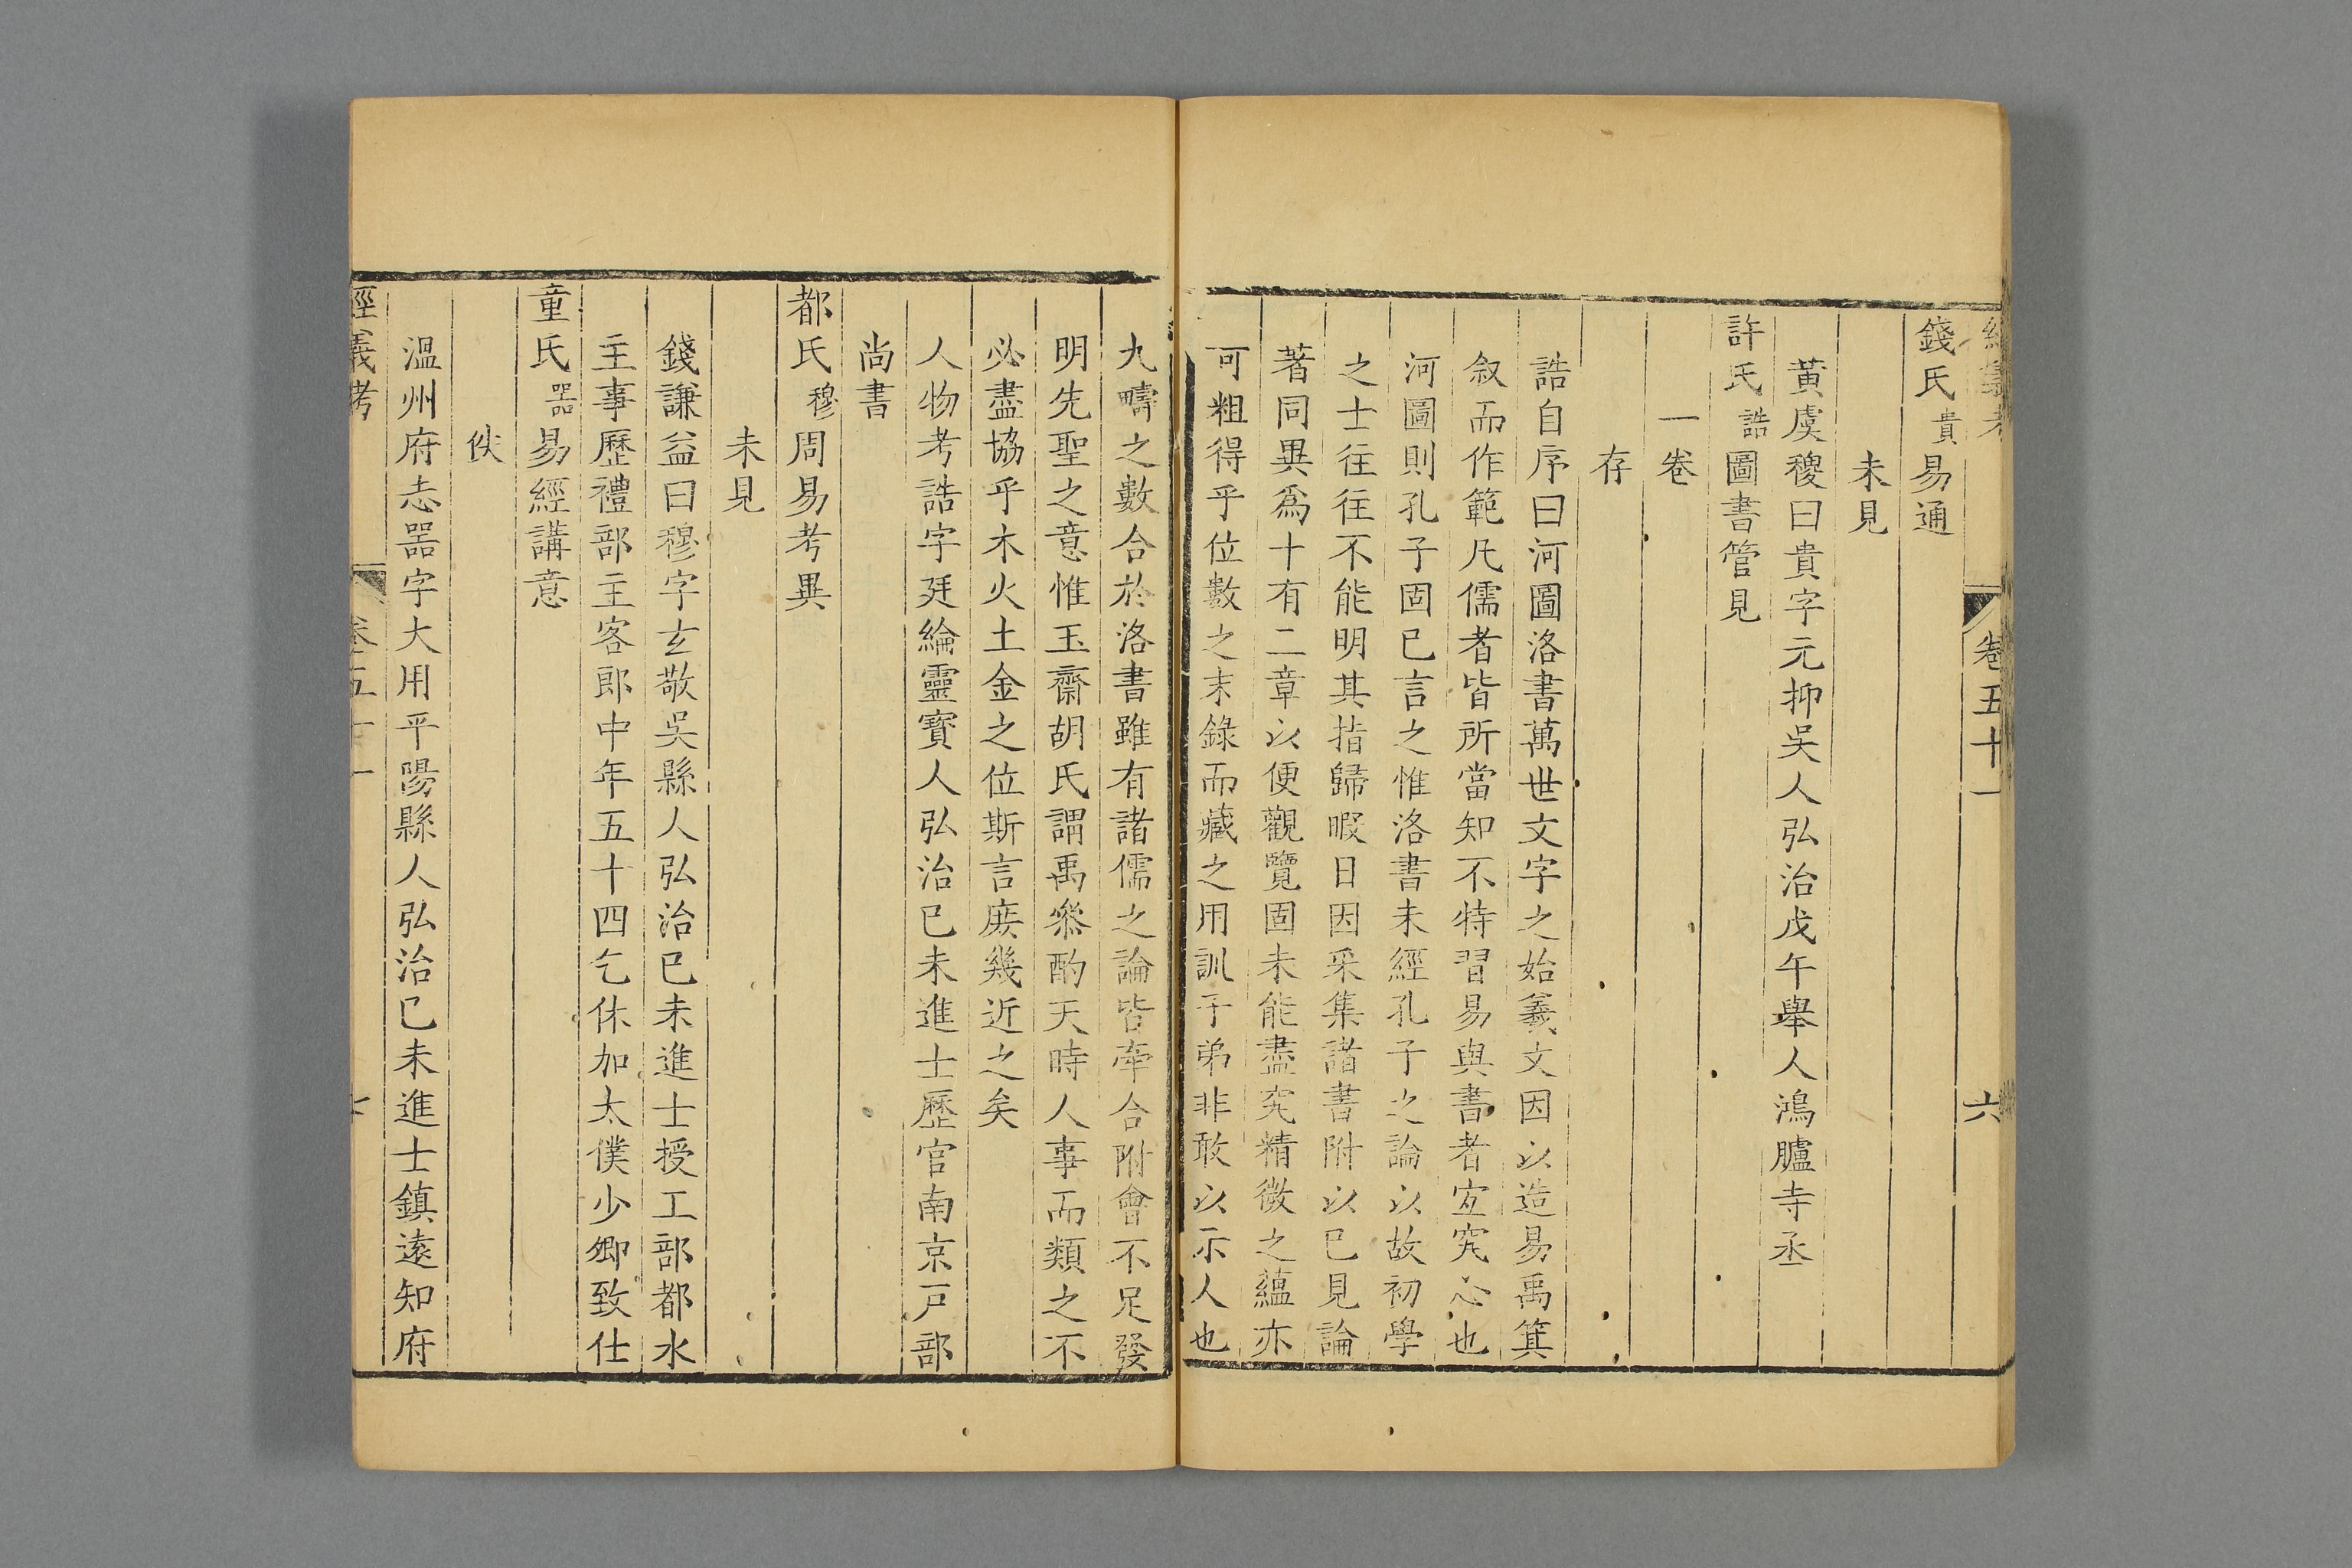 經義考 卷五十一 六
錢氏貴易通
未見
黃虞稷曰貴字元抑吳人弘治戊午舉人鴻臚寺丞
許氏誥圖書管見
一卷
存
誥自序曰河圖洛書萬世文字之始羲文因以造易禹箕
叙而作範凡儒者皆所當知不特習易與書者宐究心也
河圖則孔子固已言之惟洛書未經孔子之論以故初學
之士往往不能明其指歸暇日因采集諸書附以已見論
著同異爲十有二章以便觀覽固未能盡究精微之蘊亦
可粗得乎位數之末錄而藏之用訓子弟非敢以示人也
九疇之數合於洛書雖有諸儒之論皆牽合附會不足發
明先聖之意惟玉齋胡氏謂禹叅酌天時人事而類之不
必盡協乎木火土金之位斯言庻幾近之矣
人物考誥字廷綸靈寳人弘治已未進士歷官南京戸部
尚書
都氏穆周易考異
未見
錢謙益曰穆字玄敬吳縣人弘治已未進士授工部都水
主事歷禮部主客郎中年五十四乞休加太僕少卿致仕
童氏器易經講意
佚
溫州府志器字大用平陽縣人弘治已未進士鎮遠知府
經義考 卷五十一 七